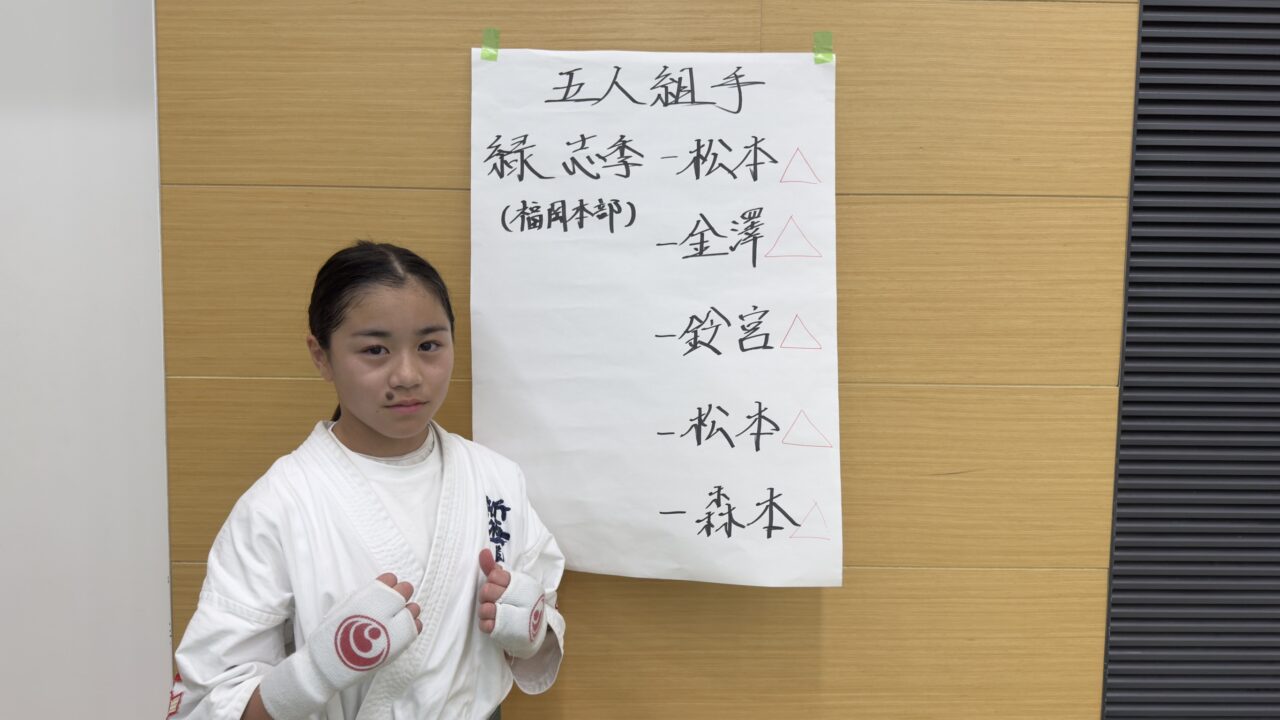 五人組手
緑 志季 － 松本 △
(福岡本部)
－ 金澤 △
－ 鈴宮 △
－ 松本 △
－ 森本 △
新極